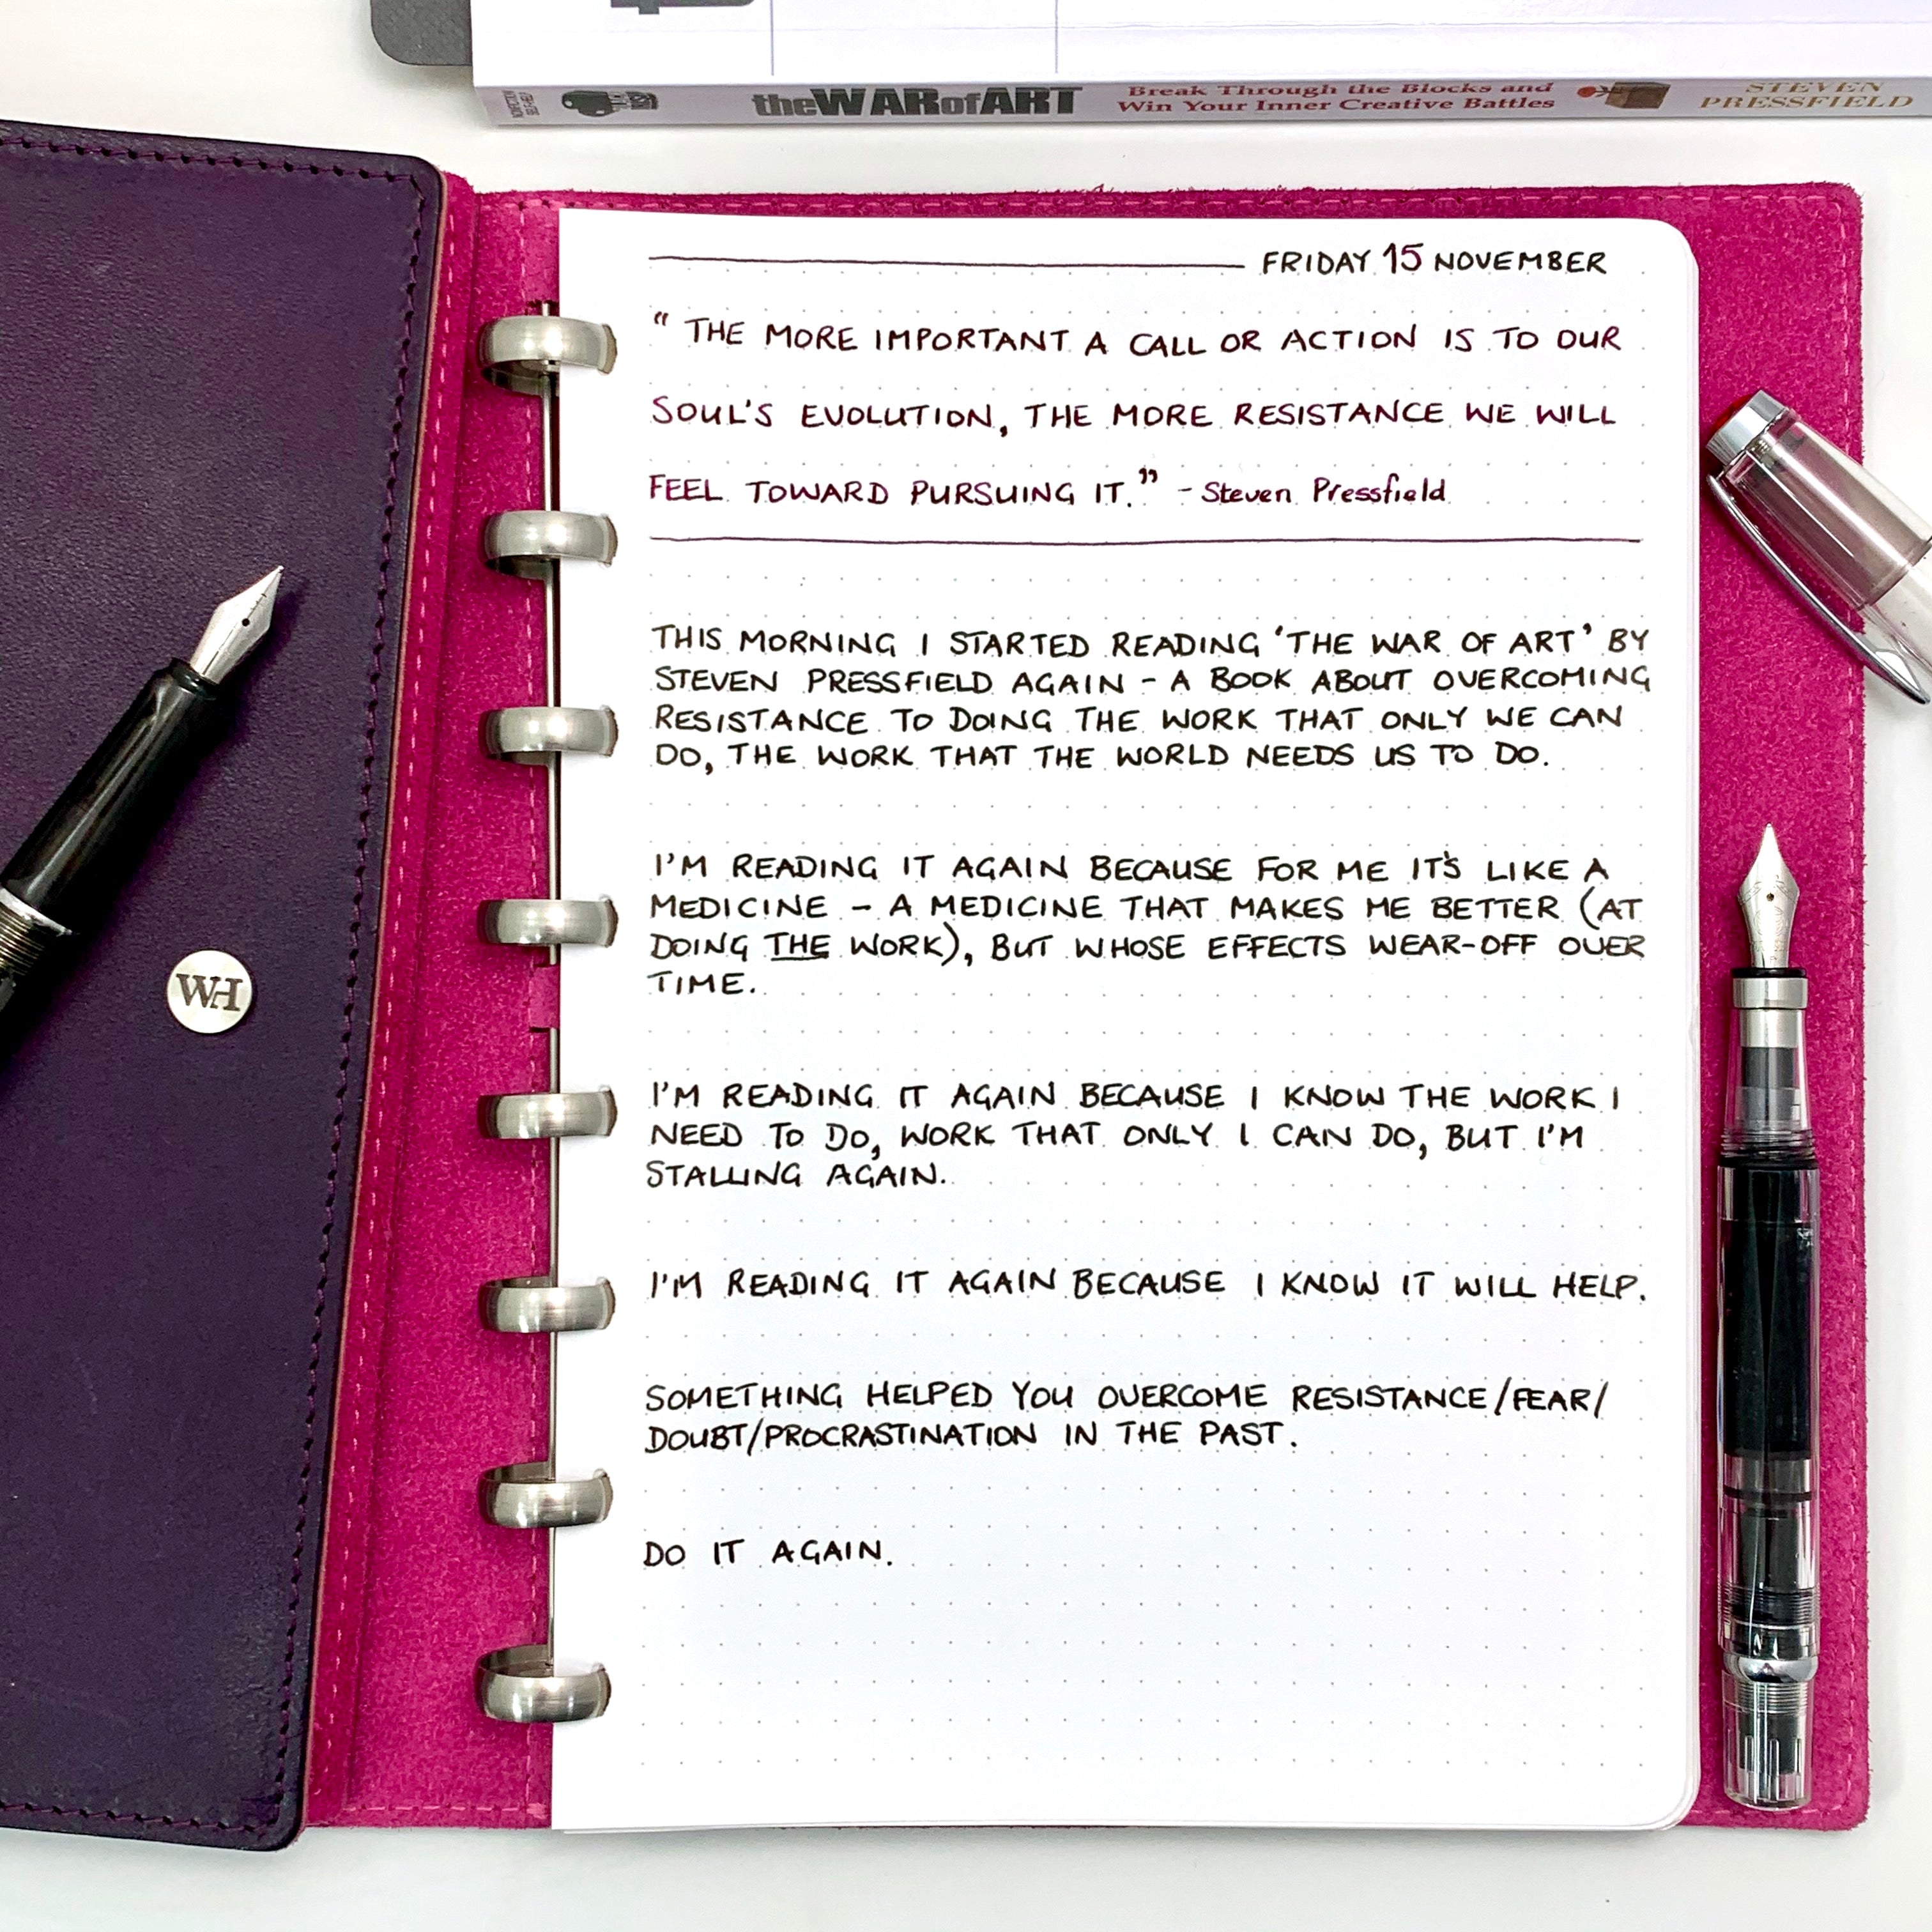 NONFICTION
SELF-HELP
BLACK IRISH
theWARofART
Break Through the Blocks and
Win Your Inner Creative Battles
STEVEN
PRESSFIELD
FRIDAY 15 NOVEMBER
“ THE MORE IMPORTANT A CALL OR ACTION IS TO OUR
SOUL'S EVOLUTION, THE MORE RESISTANCE WE WILL
FEEL TOWARD PURSUING IT.” - Steven Pressfield
THIS MORNING I STARTED READING ‘THE WAR OF ART’ BY
STEVEN PRESSFIELD AGAIN - A BOOK ABOUT OVERCOMING
RESISTANCE TO DOING THE WORK THAT ONLY WE CAN
DO, THE WORK THAT THE WORLD NEEDS US TO DO.
I'M READING IT AGAIN BECAUSE FOR ME IT'S LIKE A
MEDICINE - A MEDICINE THAT MAKES ME BETTER (AT
DOING THE WORK), BUT WHOSE EFFECTS WEAR-OFF OVER
TIME.
I'M READING IT AGAIN BECAUSE I KNOW THE WORK I
NEED TO DO, WORK THAT ONLY I CAN DO, BUT I'M
STALLING AGAIN.
I'M READING IT AGAIN BECAUSE I KNOW IT WILL HELP.
SOMETHING HELPED YOU OVERCOME RESISTANCE/FEAR/
DOUBT/PROCRASTINATION IN THE PAST.
DO IT AGAIN.
WH